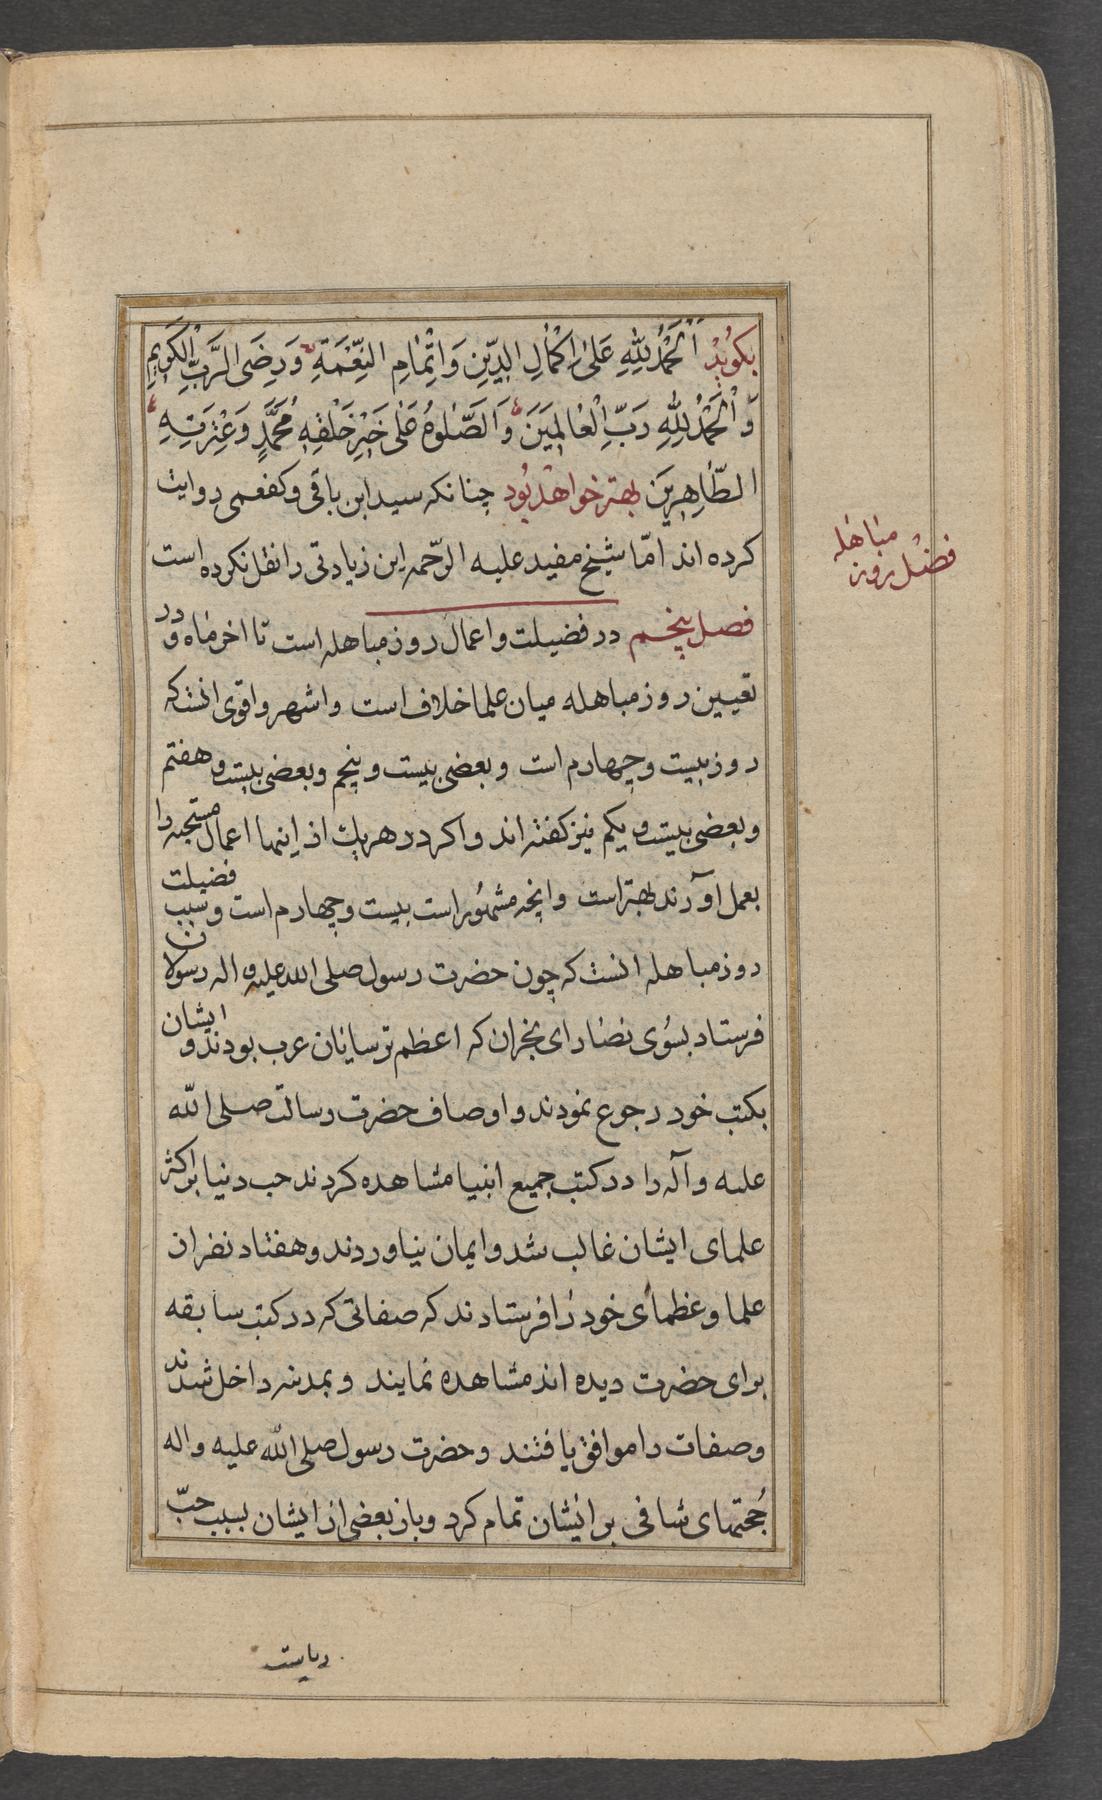 بکوید اَلْحَمْدُ لِلّٰهِ عَلیٰ اِکْمٰالِ الدّینِ وَاِتْمٰامِ النِّعْمَةِ وَرِضَی الرَّبِّ الْکَرِیمِ
وَالْحَمْدُ لِلّٰهِ رَبِّ الْعٰالَمینَ وَالصَّلٰوةُ عَلٰی خَیْرِ خَلْقِهِ مُحَمَّدٍ وَعِتْرَتِهِ
الطّٰاهِرِینَ بهتر خواهد بود چنانکه سید ابن باقی و کفعمی روایت
کرده اند امّا شیخ مفید علیه الرّحمه این زیادتی را نقل نکرده است
فضل روز مباهله
فصل پنجم در فضیلت و اعمال روز مباهله است تا اخر ماه و در
تعیین روز مباهله میان علما خلاف است و اشهر و اقوی انست که
روز بیست و چهارم است و بعضی بیست و پنجم و بعضی بیست و هفتم
و بعضی بیست و یکم نیز کفته اند و اکر در هریك از اینها اعمال مستحبه را
بعمل آورند بهتر است و انچه مشهور است بیست و چهارم است و سبب فضیلت
روز مباهله انست که چون حضرت رسول صلی الله علیه و اله رسولان
فرستاد بسوی نصارای نجران که اعظم ترسایان عرب بودند و ایشان
بکتب خود رجوع نمودند و اوصاف حضرت رسالت صلی الله
علیه و آله را در کتب جمیع انبیا مشاهده کردند حب دنیا بر اکثر
علمای ایشان غالب شد و ایمان نیاوردند و هفتاد نفر از
علما و عظمای خود را فرستادند که صفاتی که در کتب سابقه
برای حضرت دیده اند مشاهده نمایند و بمدینه داخل شدند
و صفات را موافق یافتند و حضرت رسول صلی الله علیه و اله
حُجتهای شافی بر ایشان تمام کرد و باز بعضی از ایشان بسبب حبّ
ریاست